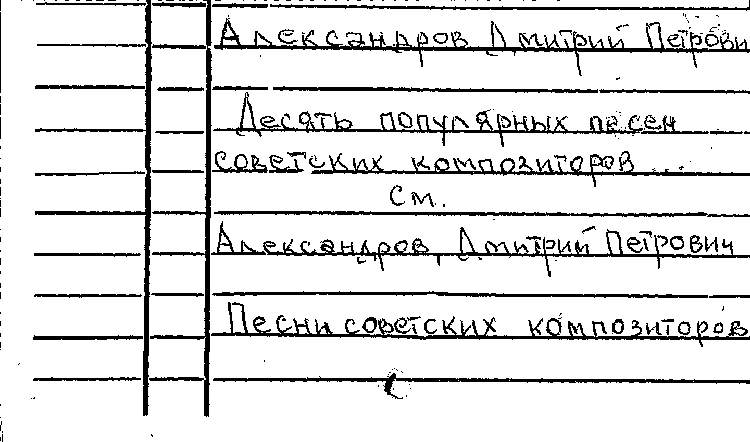 Александров Дмитрий Петрови
Десять популярных песен
советских композиторов ...
см.
Александров, Дмитрий Петрович
Песни советских композиторов